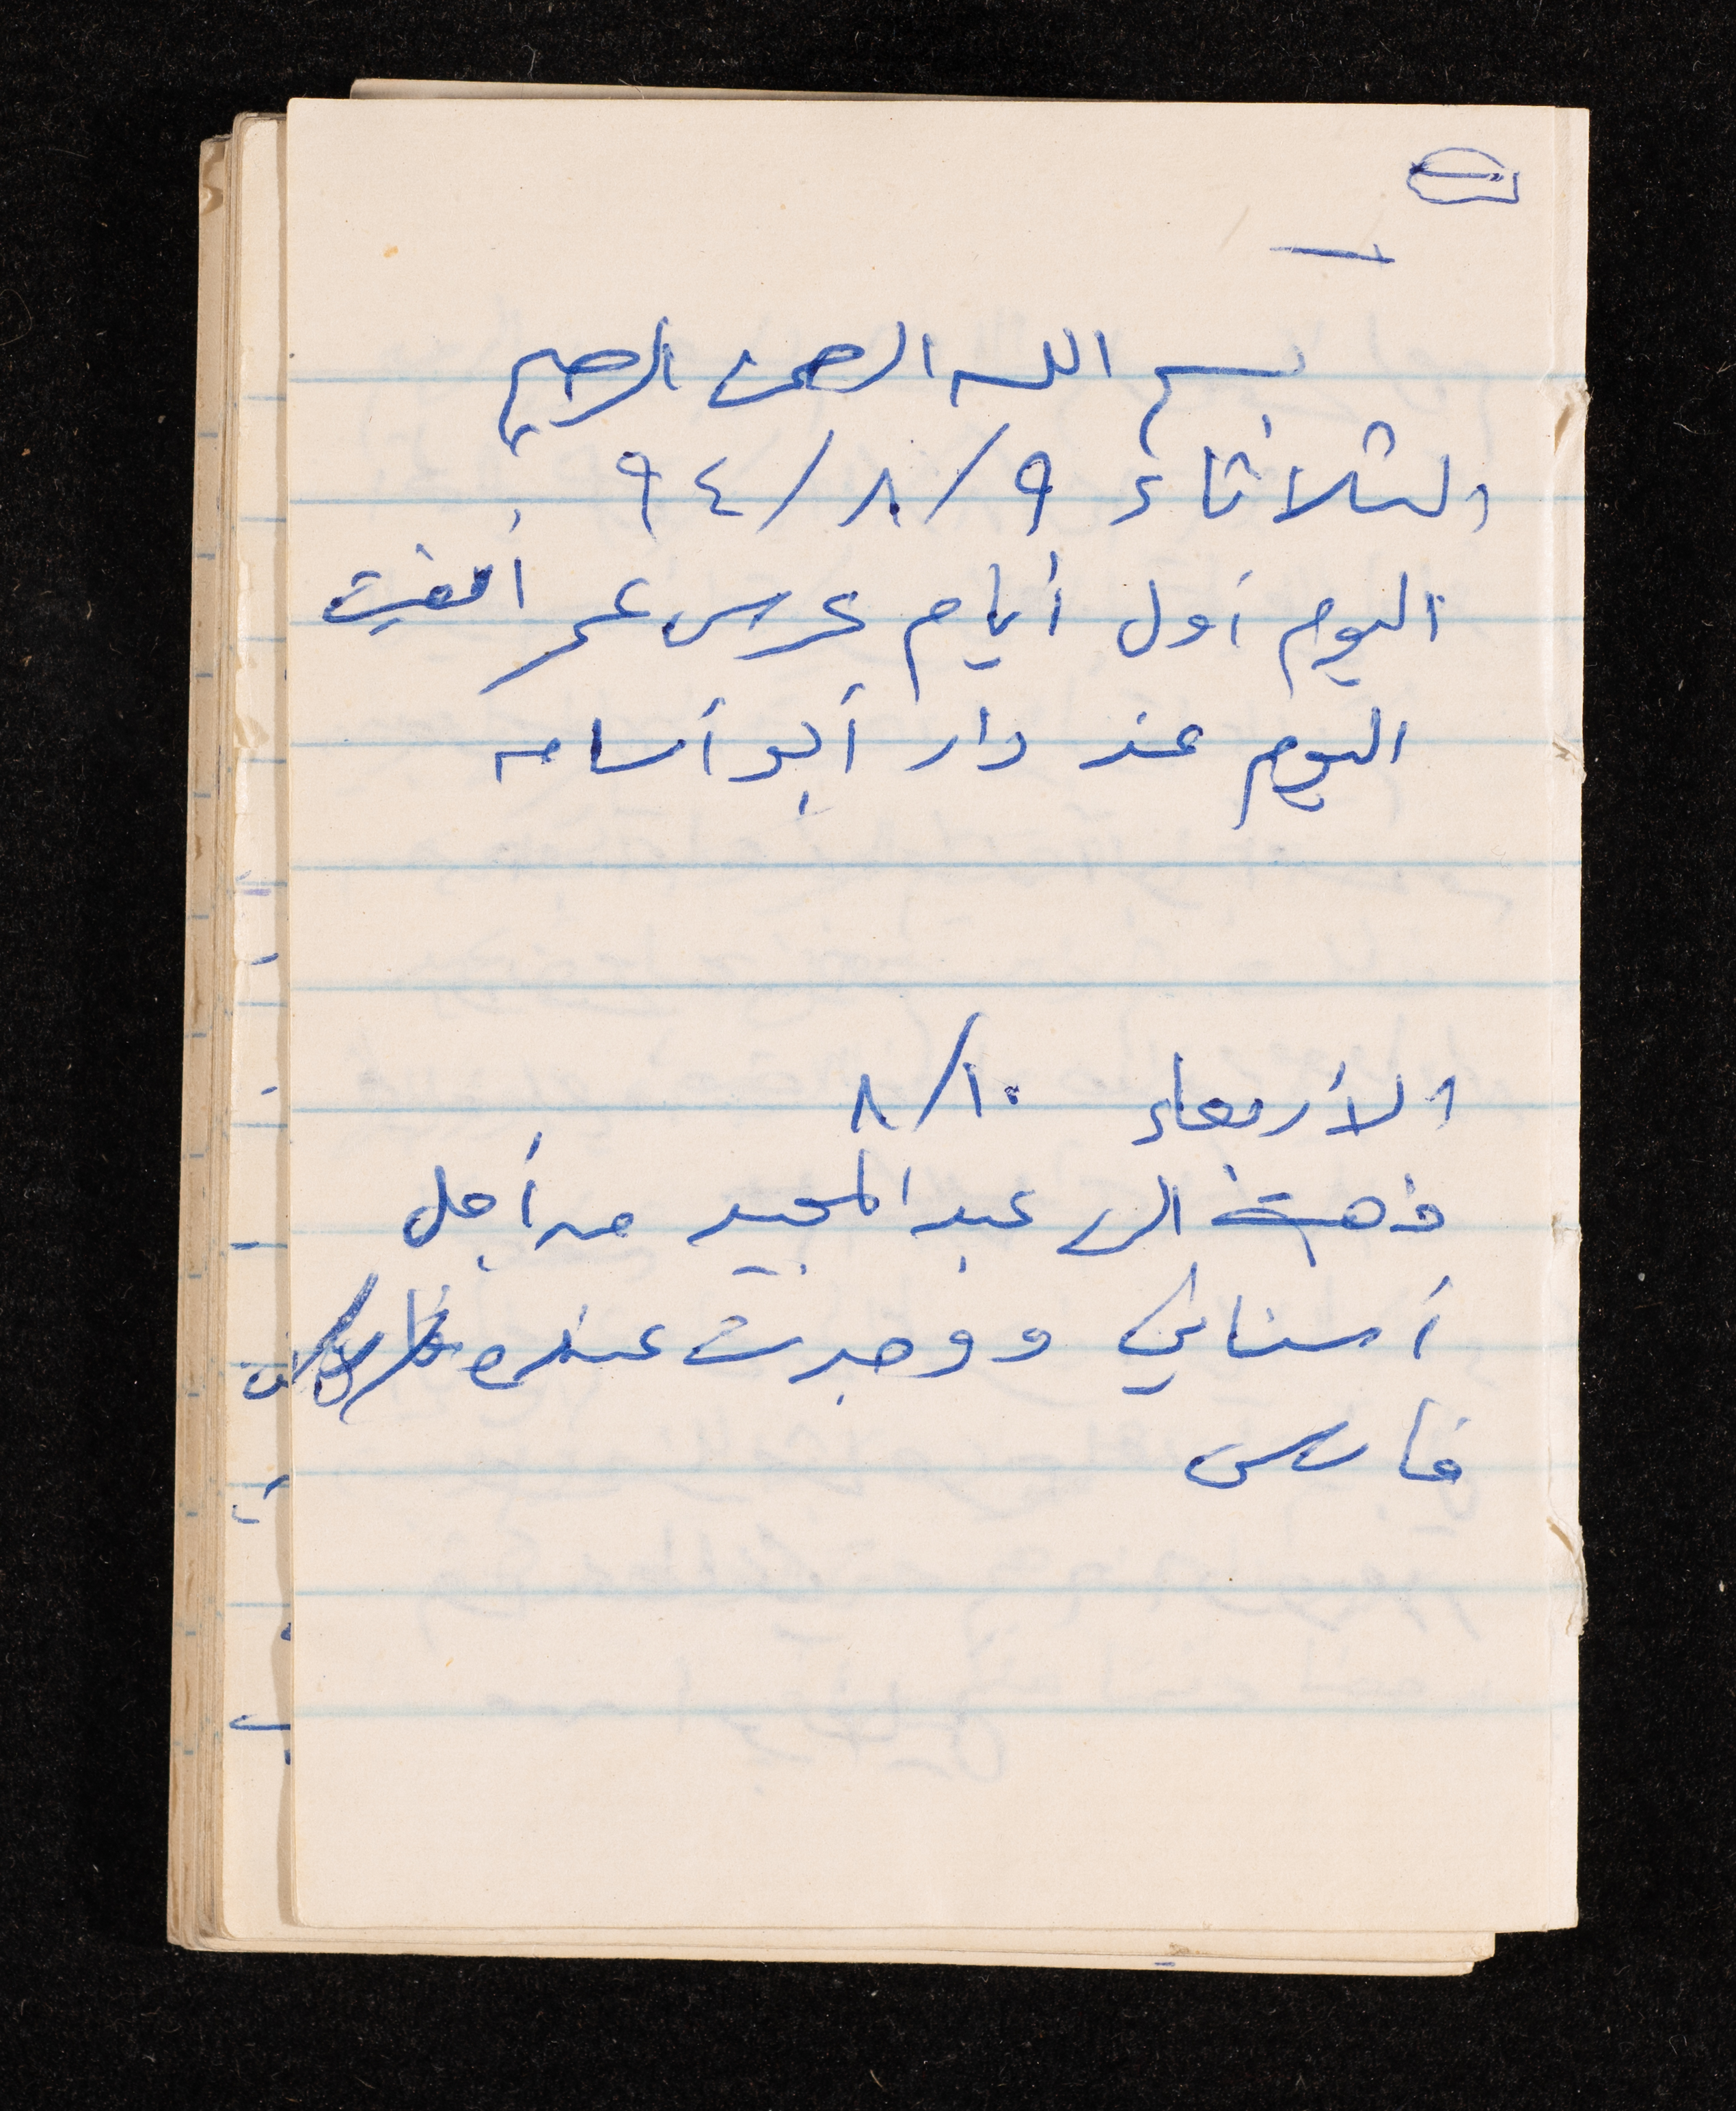 بسم الله الرحمن الرحيم
الثلاثاء ٩/٨/٩٤
اليوم أول أيام عرس عمر أمضيت
اليوم عند دار أبو أسامه
الأربعاء ١٠/٨
ذهبت الى عبد المجيد من أجل
أسناني ووجدت عنده
فارس